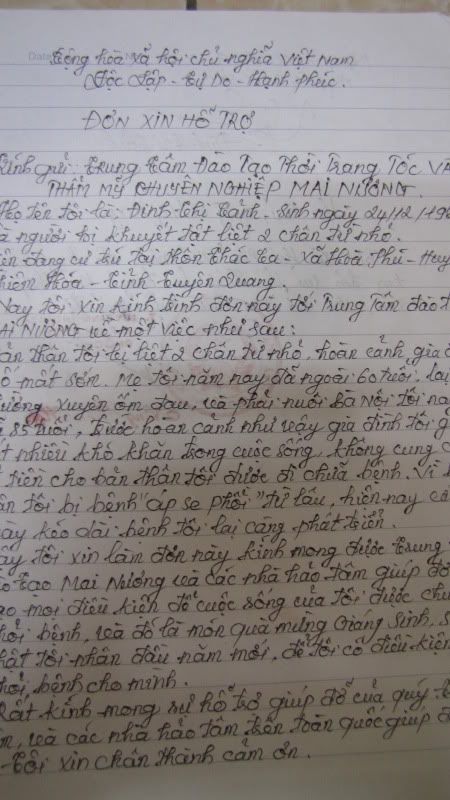 Cộng hòa xã hội chủ nghĩa Việt Nam
Độc Lập - Tự Do - Hạnh phúc.
ĐƠN XIN HỖ TRỢ
Kính gửi: Trung Tâm Đào Tạo Thời Trang Tóc Và
THẨM MỸ CHUYÊN NGHIỆP MAI NƯƠNG.
Họ tên tôi là: Đinh Thị Cảnh. Sinh ngày 24/12/198
là người bị khuyết tật liệt 2 chân từ nhỏ.
đang cư trú tại thôn Thác Ca - Xã Hòa Phú - Huy
Chiêm Hóa - Tỉnh Tuyên Quang.
Nay tôi xin kính trình đơn này tới Trung Tâm đào t
MAI NƯƠNG về một việc như sau:
thân tôi bị liệt 2 chân từ nhỏ, hoàn cảnh, gia đ
mất sớm. Mẹ tôi năm nay đã ngoài 60 tuổi, lại
xuyên ốm đau, và phải nuôi Bà Nội tôi na
85 tuổi, trước hoàn cảnh như vậy gia đình tôi g
nhiều khó khăn trong cuộc sống, không cung c
tiền cho bản thân tôi được đi chữa bệnh. Vì b
tôi bị bệnh "áp se phổi" từ lâu, hiện nay cà
kéo dài bệnh tôi lại càng phát triển.
tôi xin làm đơn này kính mong được trung
tạo Mai Nương và các nhà hảo tâm giúp đỡ
mọi điều kiện để cuộc sống của tôi được chu
bệnh, và đó là món quà mừng Giáng Sinh, s
nhật tôi nhân đầu năm mới, để tôi có điều kiện
bệnh cho mình.
Rất kính mong sự hỗ trợ giúp đỡ của quý t
và các nhà hảo tâm trên toàn quốc giúp đ
- Tôi xin chân thành cảm ơn.